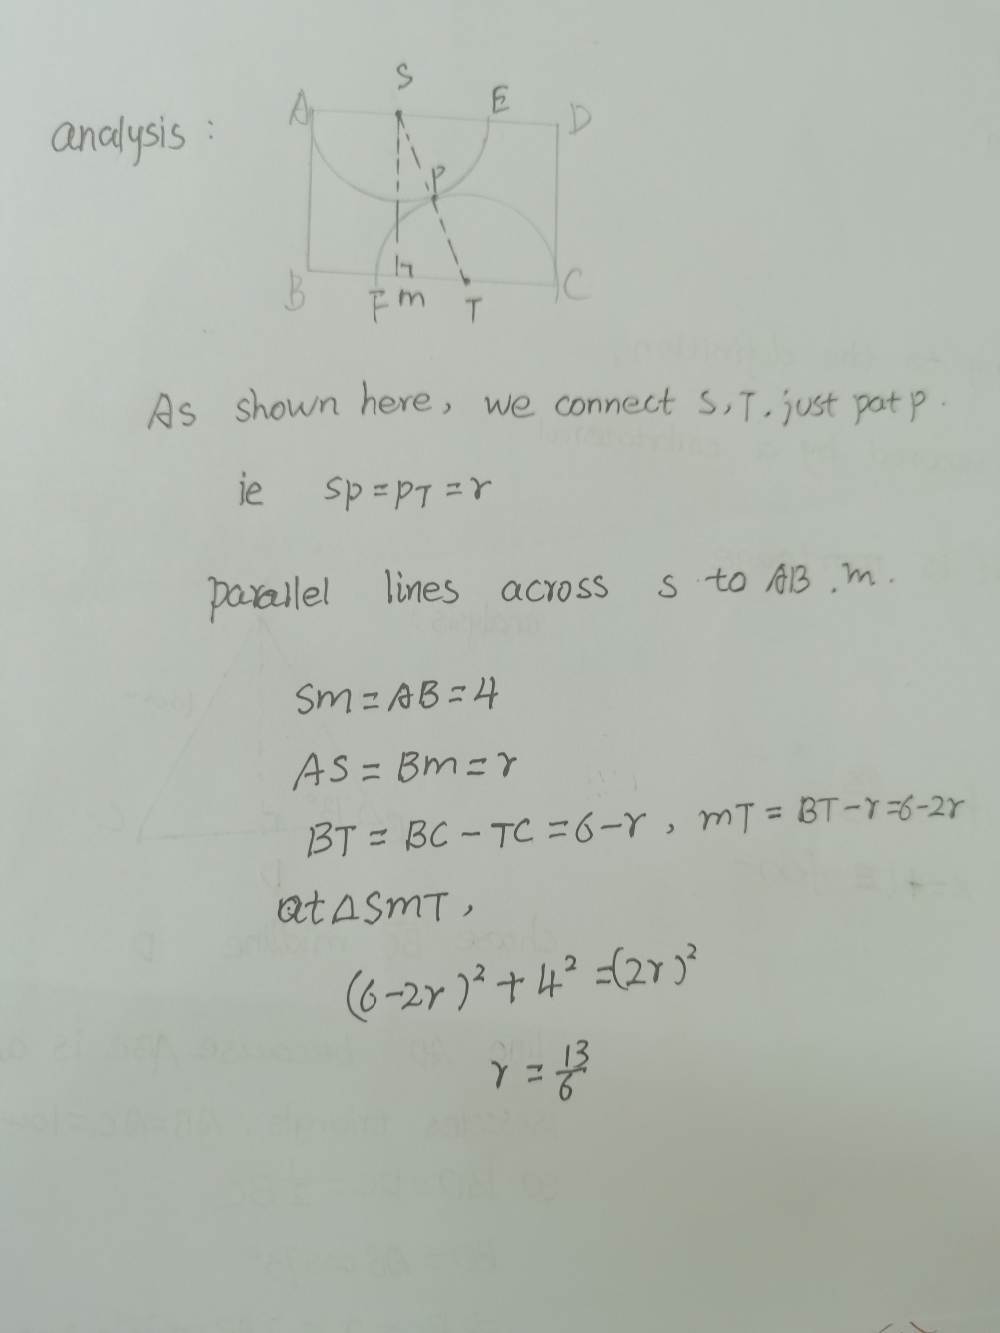 analysis :
S
A E D
P
B F m T C
As shown here, we connect S, T. just pat p.
ie sp = pT = r
parallel lines across s to AB . m.
Sm = AB = 4
AS = Bm = r
BT = BC - TC = 6-r , mT = BT-r = 6-2r
at △SmT,
(6-2r)² + 4² = (2r)²
r = 13/6